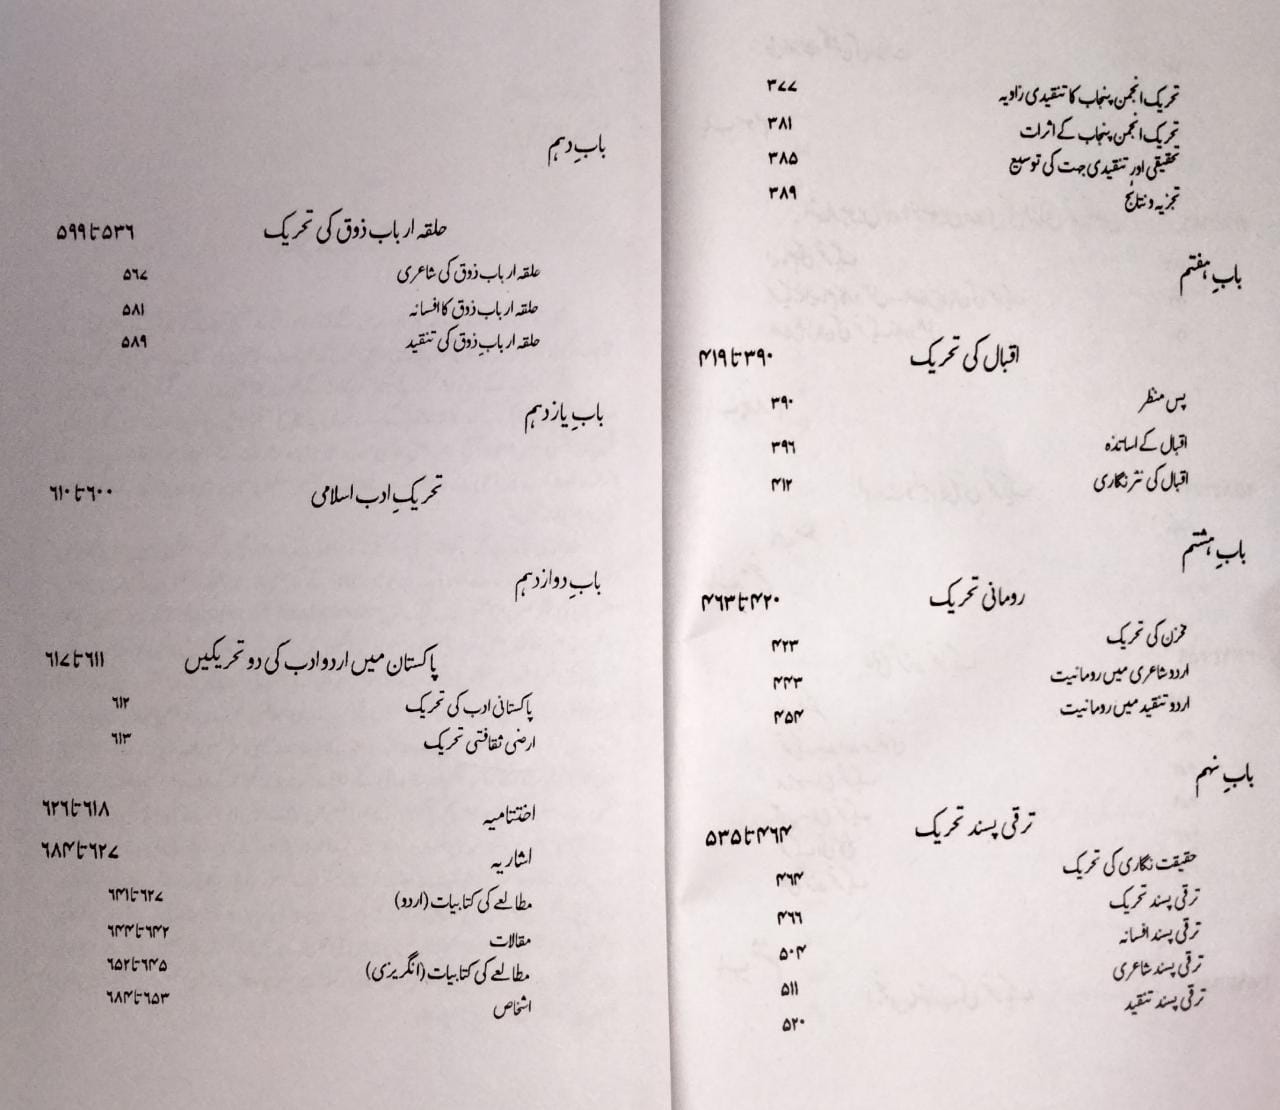 تحریک انجمن پنجاب کا تنقیدی زاویہ ۳۷۷
تحریک انجمن پنجاب کے اثرات ۳۸۱
تحقیقی اور تنقیدی جہت کی توسیع ۳۸۵
تجزیہ و نتائج ۳۸۹
بابِ ہفتم
اقبال کی تحریک ۳۹۰ تا ۴۱۹
پس منظر ۳۹۰
اقبال کے اساتذہ ۳۹۶
اقبال کی نثر نگاری ۴۱۲
بابِ ہشتم
رومانی تحریک ۴۲۰ تا ۴۶۳
مخزن کی تحریک ۴۲۳
اردو شاعری میں رومانیت ۴۴۳
اردو تنقید میں رومانیت ۴۵۴
بابِ نہم
ترقی پسند تحریک ۴۶۴ تا ۵۳۵
حقیقت نگاری کی تحریک ۴۶۴
ترقی پسند تحریک ۴۶۶
ترقی پسند افسانہ ۵۰۴
ترقی پسند شاعری ۵۱۱
ترقی پسند تنقید ۵۲۰
بابِ دہم
حلقہ ارباب ذوق کی تحریک ۵۳۶ تا ۵۹۹
حلقہ ارباب ذوق کی شاعری ۵۶۷
حلقہ ارباب ذوق کا افسانہ ۵۸۱
حلقہ اربابِ ذوق کی تنقید ۵۸۹
بابِ یازدہم
تحریکِ ادب اسلامی ۶۰۰ تا ۶۱۰
بابِ دوازدہم
پاکستان میں اردو ادب کی دو تحریکیں ۶۱۱ تا ۶۱۷
پاکستانی ادب کی تحریک ۶۱۲
ارضی ثقافتی تحریک ۶۱۳
اختتامیہ ۶۱۸ تا ۶۲۶
اشاریہ ۶۲۷ تا ۶۸۴
مطالعے کی کتابیات (اردو) ۶۲۷ تا ۶۴۱
مقالات ۶۴۲ تا ۶۴۴
مطالعے کی کتابیات (انگریزی) ۶۴۵ تا ۶۵۲
اشخاص ۶۵۳ تا ۶۸۴